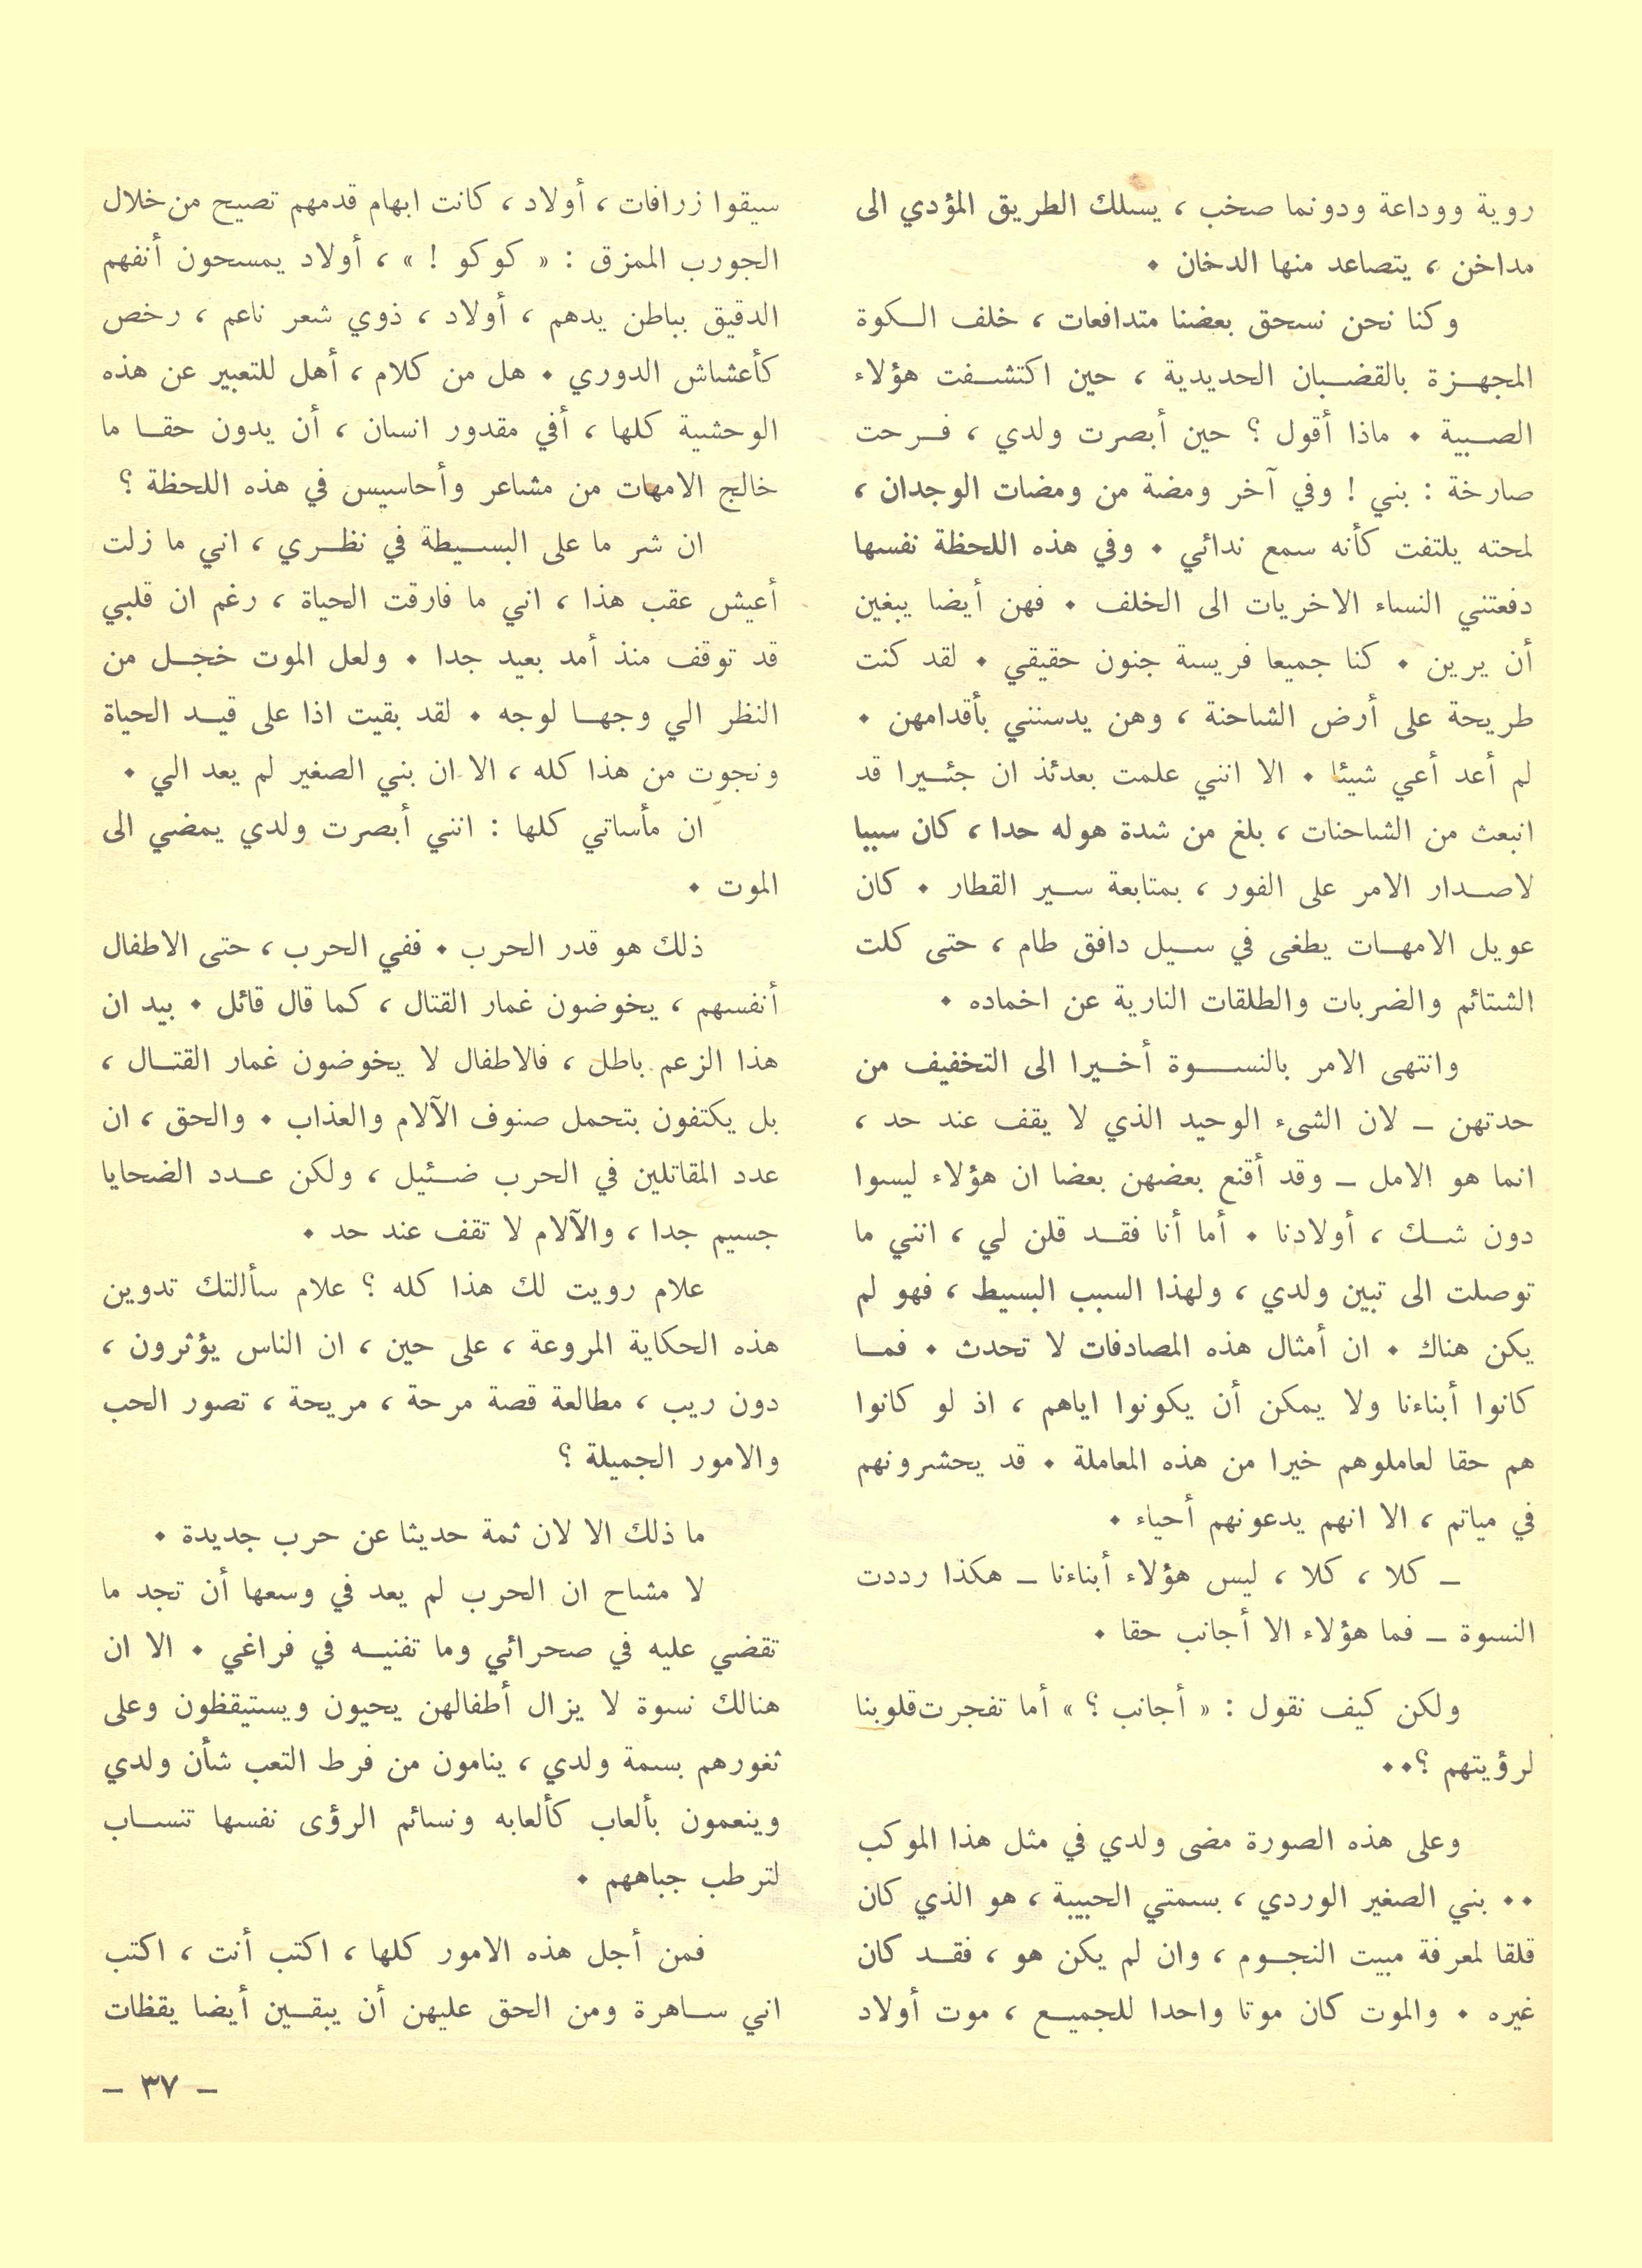 روية ووداعة ودونما صخب ، يسلك الطريق المؤدي الى
مداخن ، يتصاعد منها الدخان .
وكنا نحن نسحق بعضنا متدافعات ، خلف الكوة
المجهزة بالقضبان الحديدية ، حين اكتشفت هؤلاء
الصبية . ماذا أقول ؟ حين أبصرت ولدي ، فرحت
صارخة : بني ! وفي آخر ومضة من ومضات الوجدان ،
لمحته يلتفت كأنه سمع ندائي . وفي هذه اللحظة نفسها
دفعتني النساء الاخريات الى الخلف . فهن أيضا يبغين
أن يرين . كنا جميعا فريسة جنون حقيقي . لقد كنت
طريحة على أرض الشاحنة ، وهن يدسنني بأقدامهن .
لم أعد أعي شيئا . الا انني علمت بعدئذ ان جئيرا قد
انبعث من الشاحنات ، بلغ من شدة هوله حدا ، كان سببا
لاصدار الامر على الفور ، بمتابعة سير القطار . كان
عويل الامهات يطغى في سيل دافق طام ، حتى كلت
الشتائم والضربات والطلقات النارية عن اخماده .
وانتهى الامر بالنسوة أخيرا الى التخفيف من
حدتهن – لان الشىء الوحيد الذي لا يقف عند حد ،
انما هو الامل – وقد أقنع بعضهن بعضا ان هؤلاء ليسوا
دون شك ، أولادنا . أما أنا فقد قلن لي ، انني ما
توصلت الى تبين ولدي ، ولهذا السبب البسيط ، فهو لم
يكن هناك . ان أمثال هذه المصادفات لا تحدث . فما
كانوا أبناءنا ولا يمكن أن يكونوا اياهم ، اذ لو كانوا
هم حقا لعاملوهم خيرا من هذه المعاملة . قد يحشرونهم
في مياتم ، الا انهم يدعونهم أحياء .
– كلا ، كلا ، ليس هؤلاء أبناءنا – هكذا رددت
النسوة – فما هؤلاء الا أجانب حقا .
ولكن كيف نقول : « أجانب ؟ » أما تفجرت قلوبنا
لرؤيتهم ؟..
وعلى هذه الصورة مضى ولدي في مثل هذا الموكب
.. بني الصغير الوردي ، بسمتي الحبيبة ، هو الذي كان
قلقا لمعرفة مبيت النجوم ، وان لم يكن هو ، فقد كان
غيره . والموت كان موتا واحدا للجميع ، موت أولاد
سيقوا زرافات ، أولاد ، كانت ابهام قدمهم تصيح من خلال
الجورب الممزق : « كوكو ! » ، أولاد يمسحون أنفهم
الدقيق بباطن يدهم ، أولاد ، ذوي شعر ناعم ، رخص
كأعشاش الدوري . هل من كلام ، أهل للتعبير عن هذه
الوحشية كلها ، أفي مقدور انسان ، أن يدون حقا ما
خالج الامهات من مشاعر وأحاسيس في هذه اللحظة ؟
ان شر ما على البسيطة في نظري ، اني ما زلت
أعيش عقب هذا ، اني ما فارقت الحياة ، رغم ان قلبي
قد توقف منذ أمد بعيد جدا . ولعل الموت خجل من
النظر الي وجها لوجه . لقد بقيت اذا على قيد الحياة
ونجوت من هذا كله ، الا ان بني الصغير لم يعد الي .
ان مأساتي كلها : انني أبصرت ولدي يمضي الى
الموت .
ذلك هو قدر الحرب . ففي الحرب ، حتى الاطفال
أنفسهم ، يخوضون غمار القتال ، كما قال قائل . بيد ان
هذا الزعم باطل ، فالاطفال لا يخوضون غمار القتال ،
بل يكتفون بتحمل صنوف الآلام والعذاب . والحق ، ان
عدد المقاتلين في الحرب ضئيل ، ولكن عدد الضحايا
جسيم جدا ، والآلام لا تقف عند حد .
علام رويت لك هذا كله ؟ علام سألتك تدوين
هذه الحكاية المروعة ، على حين ، ان الناس يؤثرون ،
دون ريب ، مطالعة قصة مرحة ، مريحة ، تصور الحب
والامور الجميلة ؟
ما ذلك الا لان ثمة حديثا عن حرب جديدة .
لا مشاح ان الحرب لم يعد في وسعها أن تجد ما
تقضي عليه في صحرائي وما تفنيه في فراغي . الا ان
هنالك نسوة لا يزال أطفالهن يحيون ويستيقظون وعلى
ثغورهم بسمة ولدي ، ينامون من فرط التعب شأن ولدي
وينعمون بألعاب كألعابه ونسائم الرؤى نفسها تنساب
لترطب جباههم .
فمن أجل هذه الامور كلها ، اكتب أنت ، اكتب
اني ساهرة ومن الحق عليهن أن يبقين أيضا يقظات
– ٣٧ –